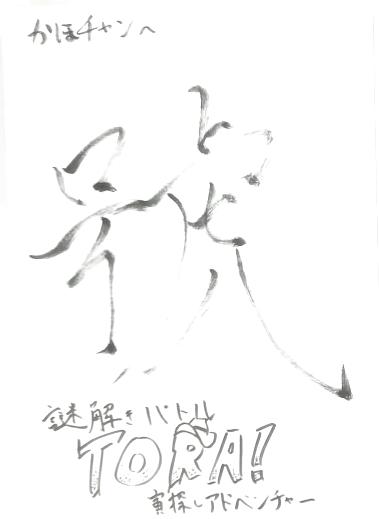 かほチャンへ
謎解きバトル
TORA!
寅探しアドベンチャー